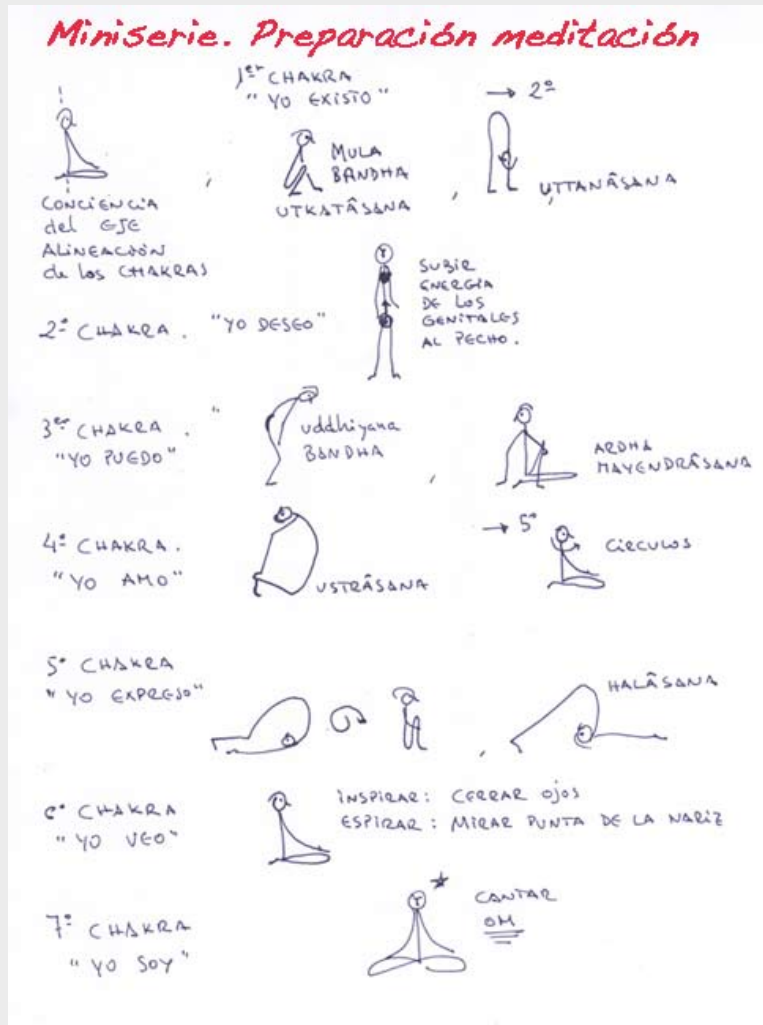 Miniserie. Preparación meditación
1er CHAKRA
"YO EXISTO"
→ 2º
MULA
BANDHA
UTKATÂSANA
UTTANÂSANA
CONCIENCIA
del EJE
ALINEACIÓN
de los CHAKRAS
2º CHAKRA. "YO DESEO"
SUBIR
ENERGIA
DE LOS
GENITALES
AL PECHO.
3er CHAKRA.
"YO PUEDO"
uddhiyana
BANDHA
ARDHA
MAYENDRÂSANA
4º CHAKRA.
"YO AMO"
USTRÂSANA
→ 5º
CÍRCULOS
5º CHAKRA
"YO EXPRESO"
HALÂSANA
6º CHAKRA
"YO VEO"
INSPIRAR: CERRAR OJOS
ESPIRAR: MIRAR PUNTA DE LA NARIZ
7º CHAKRA
"YO SOY"
CANTAR
OM